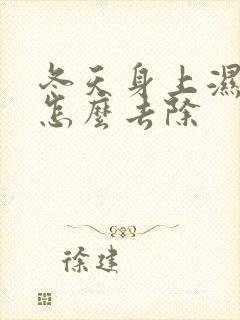 冬天身上濕
怎麼去除
徐建